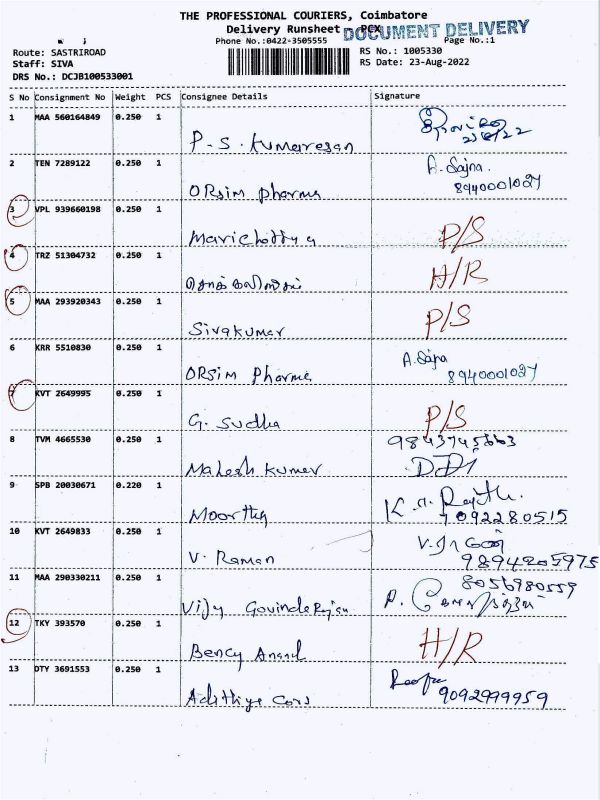 THE PROFESSIONAL COURIERS, Coimbatore
Delivery Runsheet - PCX
DOCUMENT DELIVERY
Phone No.:0422-3505555 Page No.:1
Route: SASTRIROAD RS No.: 1005330
Staff: SIVA RS Date: 23-Aug-2022
DRS No.: DCJB100533001
S No Consignment No Weight PCS Consignee Details Signature
1 MAA 560164849 0.250 1
P.S. Kumaresan
2 TEN 7289122 0.250 1 A. Sajna.
8940001027
ORsim Pharma
3 VPL 939660198 0.250 1
P/S
4 TRZ 51304732 0.250 1 H/R
5 MAA 293920343 0.250 1 P/S
Sivakumar
6 KRR 5510830 0.250 1 A. Sajna
8940001027
ORsim Pharma
7 KVT 2649995 0.250 1
G. Sudha P/S
8 TVM 4665530 0.250 1
Mahesh Kumar
9 SPB 20030671 0.220 1
Moorthy 7092280515
10 KVT 2649833 0.250 1
V. Raman 9894205975
11 MAA 290330211 0.250 1 8056980559
Vijy Govindarajan
12 TKY 393570 0.250 1 H/R
Bency Anand
13 DTY 3691553 0.250 1
9092999959